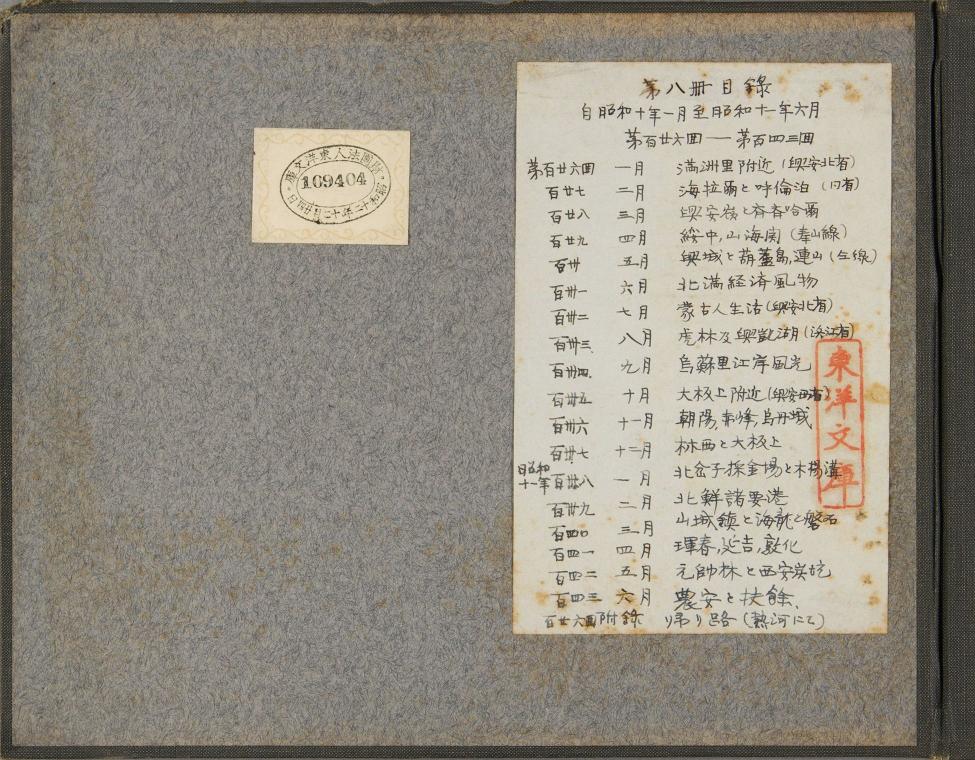 財團法人東洋文庫
109404
昭和十二年二月廿四日
第八冊目錄
自昭和十年一月至昭和十一年六月
第百廿六回──第百四三回
第百廿六回 一月 滿洲里附近(興安北省)
百廿七 二月 海拉爾と呼倫泊(〃省)
百廿八 三月 興安嶺と斉斉哈爾
百廿九 四月 綏中,山海関(奉山線)
百卅 五月 興城と葫蘆島,連山(仝線)
百卅一 六月 北満経済風物
百卅二 七月 蒙古人生活(興安北省)
百卅三 八月 虎林及興凱湖(浜江省)
百卅四 九月 烏蘇里江岸風光
百卅五 十月 大板上附近(興安西省)
百卅六 十一月 朝陽,赤峰,烏丹城
百卅七 十二月 林西と大板上
昭和十一年 百卅八 一月 北岔子採金場と木楊溝
百卅九 二月 北鮮諸要港
百四〇 三月 山城鎮と海龍と磐石
百四一 四月 琿春,延吉,敦化
百四二 五月 元帥林と西安炭坑
百四三 六月 農安と扶餘.
百廿六回附錄 帰り路(熱河にて)
東洋文庫